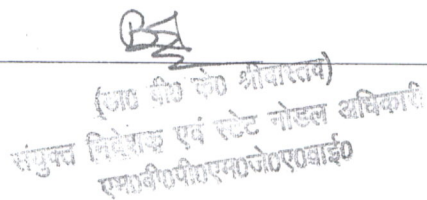 (डा० बी० के० श्रीवास्तव)
संयुक्त निदेशक एवं स्टेट नोडल अधिकारी
एम०बी०पी०एम०जे०ए०वाई०